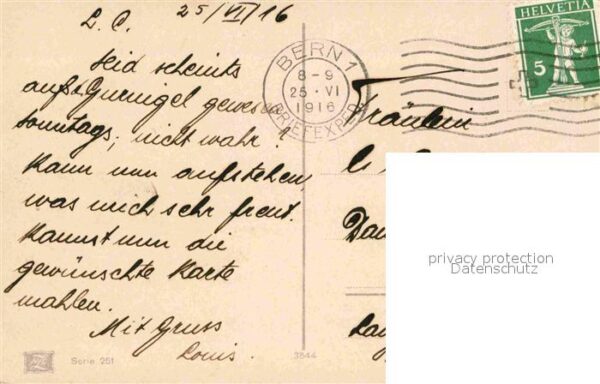 L. C. 25/VI/16
Seid scheints
aufs Gurnigel gewesen
Sonntags, nicht wahr?
Kann nun aufstehen,
was mich sehr freut.
Kannst nun die
gewünschte Karte
mahlen.
Mit Gruss
Louis.
HELVETIA
5
BERN 1
8-9
25 · VI
1916
BRIEFEXP.
Fräulein
privacy protection
Datenschutz
Serie 251
3844